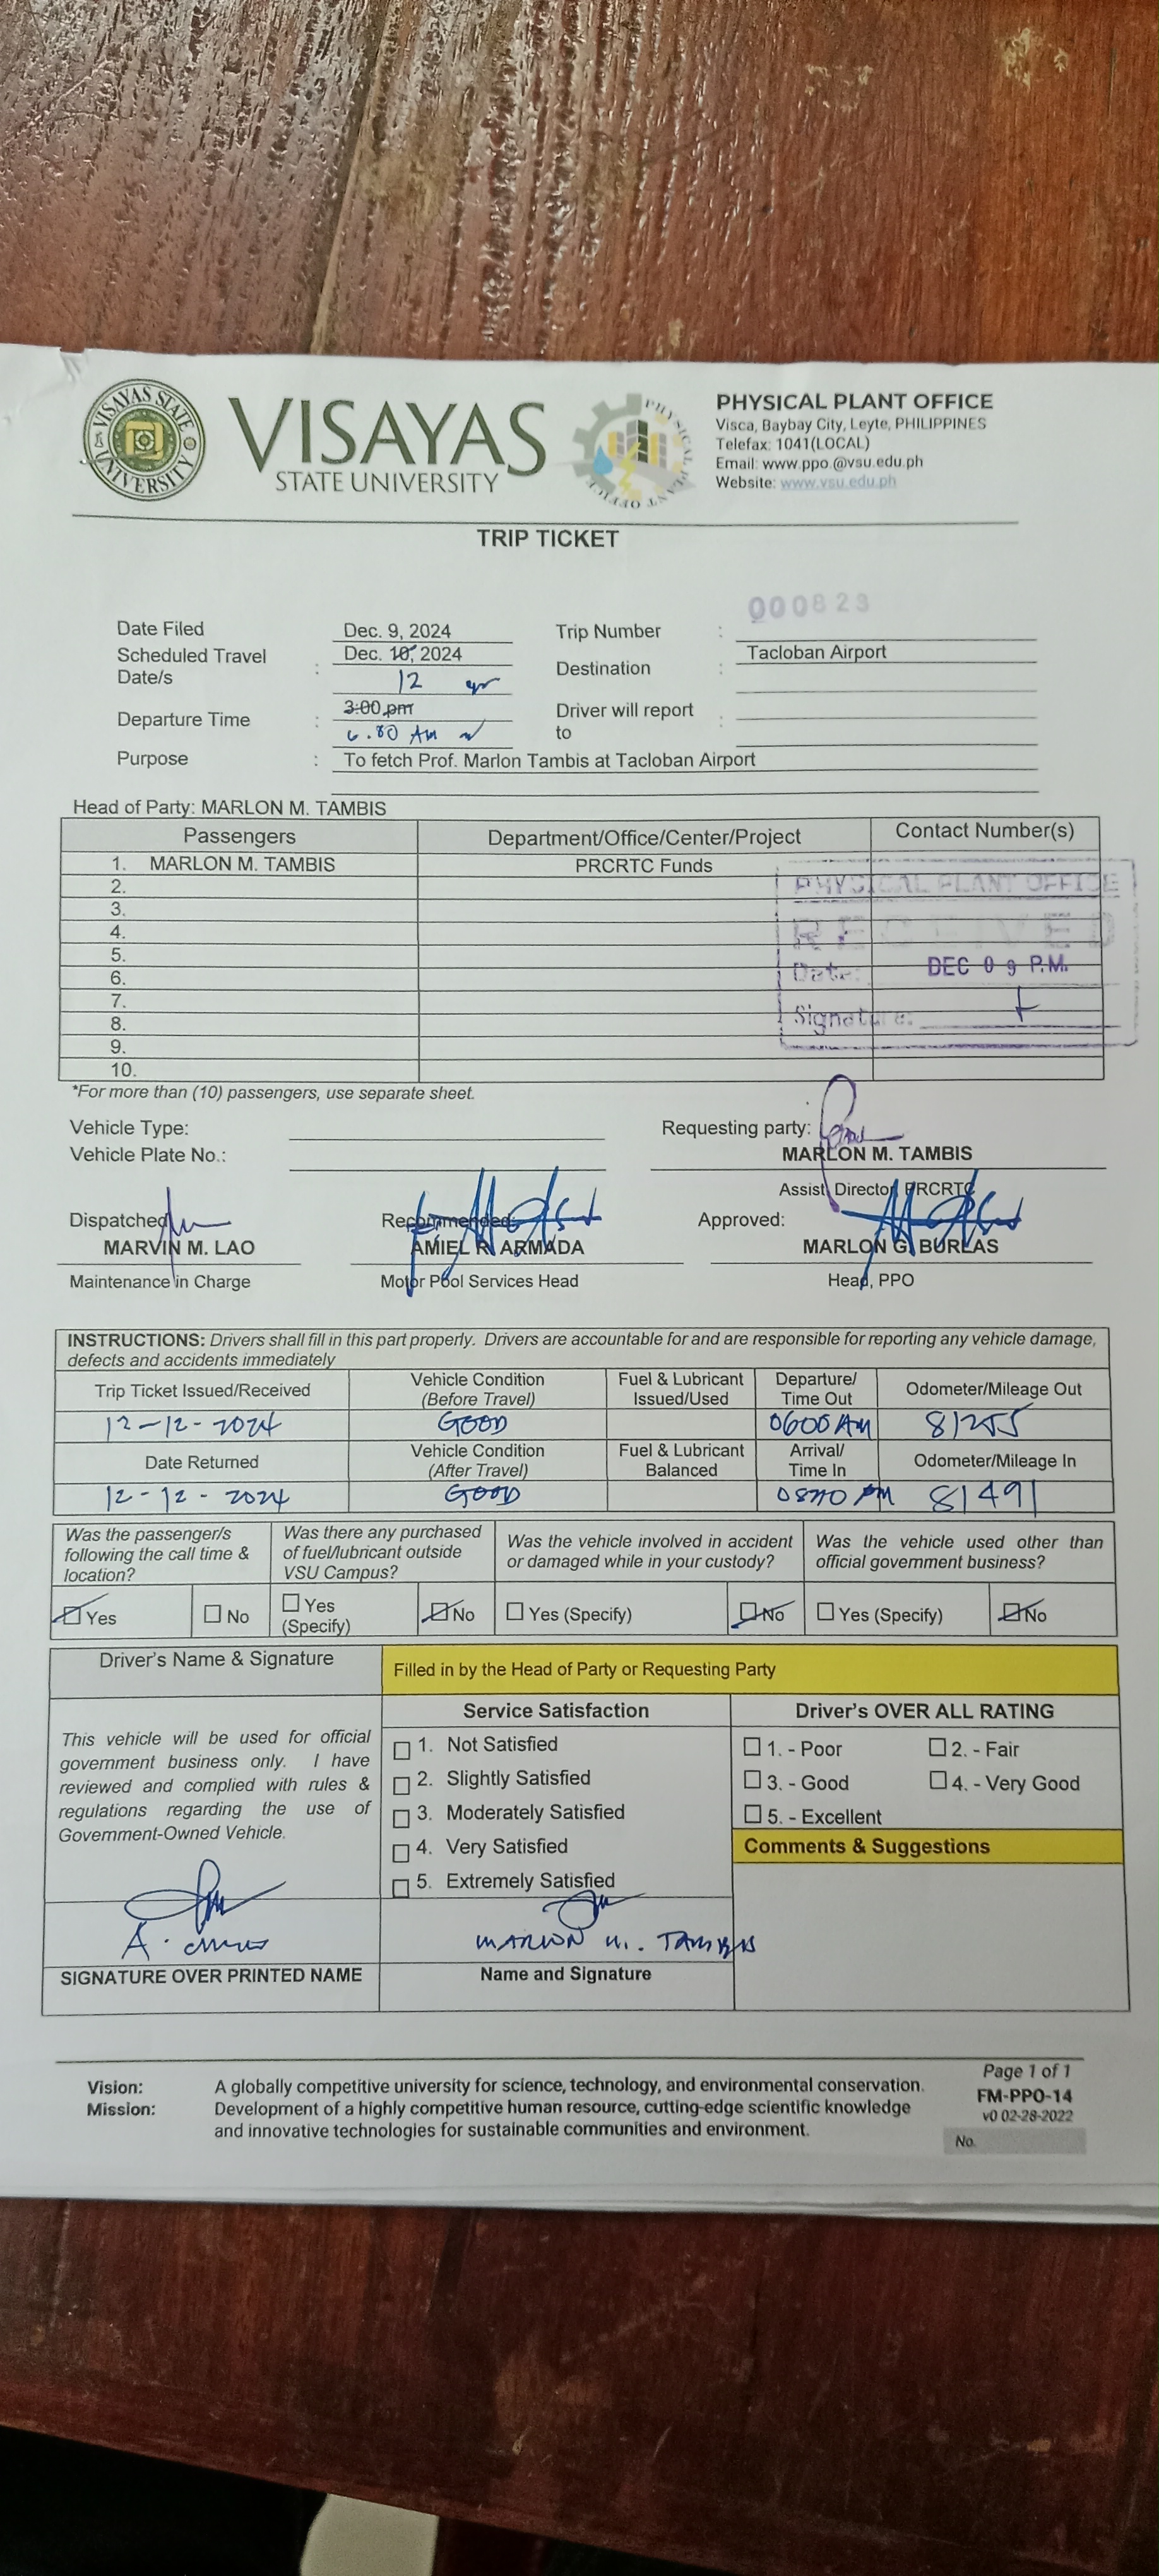 VISAYAS STATE UNIVERSITY
VISAYAS
STATE UNIVERSITY
PHYSICAL PLANT OFFICE
PHYSICAL PLANT OFFICE
Visca, Baybay City, Leyte, PHILIPPINES
Telefax: 1041(LOCAL)
Email: www.ppo.@vsu.edu.ph
Website: www.vsu.edu.ph
TRIP TICKET
000823
Date Filed Dec. 9, 2024 Trip Number :
Scheduled Travel Date/s : Dec. 10, 2024 Destination : Tacloban Airport
12
Departure Time : 3:00 pm Driver will report to :
AM
Purpose : To fetch Prof. Marlon Tambis at Tacloban Airport
Head of Party: MARLON M. TAMBIS
Passengers Department/Office/Center/Project Contact Number(s)
1. MARLON M. TAMBIS PRCRTC Funds
2.
3.
4.
5.
6.
7.
8.
9.
10.
PHYSICAL PLANT OFFICE
RECEIVED
Date: DEC 09 P.M.
Signature:
*For more than (10) passengers, use separate sheet.
Vehicle Type: Requesting party:
Vehicle Plate No.: MARLON M. TAMBIS
Assist. Director, PRCRTC
Dispatched Recommended: Approved:
MARVIN M. LAO AMIEL R. ARMADA MARLON G. BURLAS
Maintenance in Charge Motor Pool Services Head Head, PPO
INSTRUCTIONS: Drivers shall fill in this part properly. Drivers are accountable for and are responsible for reporting any vehicle damage,
defects and accidents immediately
Trip Ticket Issued/Received Vehicle Condition (Before Travel) Fuel & Lubricant Issued/Used Departure/ Time Out Odometer/Mileage Out
12-12-2024 GOOD 0600 AM 81255
Date Returned Vehicle Condition (After Travel) Fuel & Lubricant Balanced Arrival/ Time In Odometer/Mileage In
12-12-2024 GOOD PM 81491
Was the passenger/s following the call time & location? Was there any purchased of fuel/lubricant outside VSU Campus? Was the vehicle involved in accident or damaged while in your custody? Was the vehicle used other than official government business?
Yes No Yes (Specify) No Yes (Specify) No Yes (Specify) No
Driver's Name & Signature Filled in by the Head of Party or Requesting Party
Service Satisfaction Driver's OVER ALL RATING
This vehicle will be used for official
government business only. I have
reviewed and complied with rules &
regulations regarding the use of
Government-Owned Vehicle.
1. Not Satisfied
2. Slightly Satisfied
3. Moderately Satisfied
4. Very Satisfied
5. Extremely Satisfied
1. - Poor 2. - Fair
3. - Good 4. - Very Good
5. - Excellent
Comments & Suggestions
A. MARLON M. TAMBIS
SIGNATURE OVER PRINTED NAME Name and Signature
Vision: A globally competitive university for science, technology, and environmental conservation.
Mission: Development of a highly competitive human resource, cutting-edge scientific knowledge
and innovative technologies for sustainable communities and environment.
Page 1 of 1
FM-PPO-14
v0 02-28-2022
No.